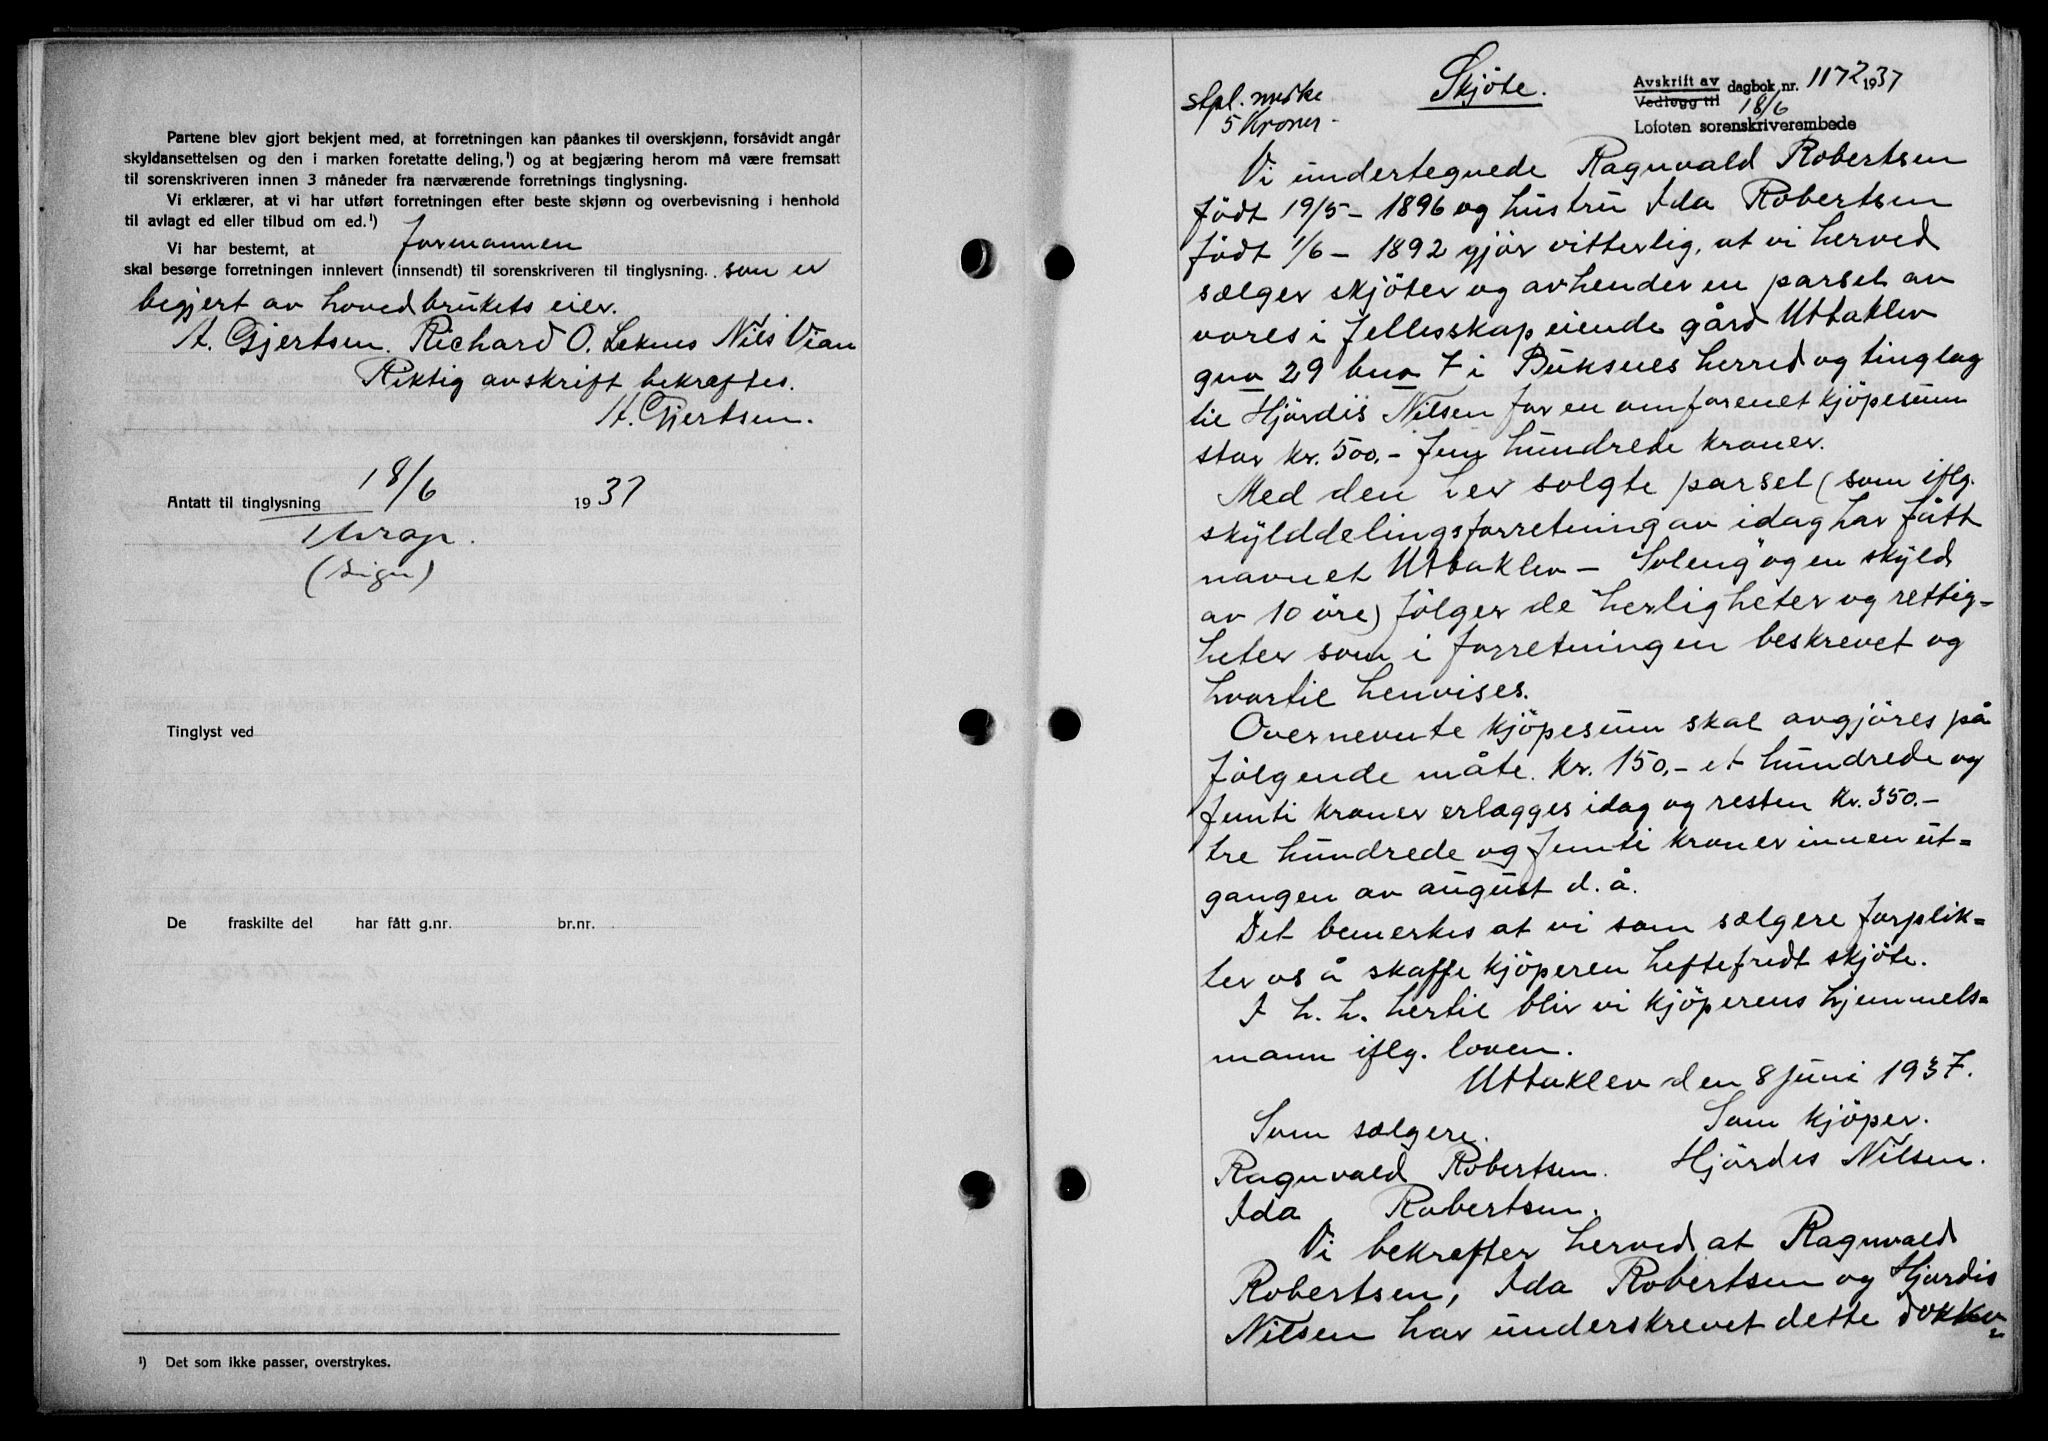 Partene blev gjort bekjent med, at forretningen kan påankes til overskjønn, forsåvidt angår
skyldansettelsen og den i marken foretatte deling,¹) og at begjæring herom må være fremsatt
til sorenskriveren innen 3 måneder fra nærværende forretnings tinglysning.
Vi erklærer, at vi har utført forretningen efter beste skjønn og overbevisning i henhold
til avlagt ed eller tilbud om ed.¹)
Vi har bestemt, at formannen
skal besørge forretningen innlevert (innsendt) til sorenskriveren til tinglysning. som er
begjert av hovedbrukets eier.
A. Gjertsen. Richard O. Leknes Nils Vian
Riktig avskrift bekræftes.
A. Gjertsen.
Antatt til tinglysning 18/6 1937
(sign)
Tinglyst ved
De fraskilte del har fått g.nr. br.nr.
¹) Det som ikke passer, overstrykes.
Skjöte.
stpl. merke
5 Kroner-
Avskrift av
Vedlegg til
dagbok nr. 1172 1937
18/6
Lofoten sorenskriverembede
Vi undertegnede Ragnvald Robertsen
født 19/5 - 1896 og hustru Ida Robertsen
født 1/6 - 1892 gjör vitterlig, at vi herved
sælger skjöter og avhender en parsel av
vores i fellesskap eiende gård Uttaklev
gno 29 bno 7 i Buksnes herred og tinglag
til Hjördis Nilsen for en omforenet kjöpesum
stor kr. 500.- fem hundrede kroner.
Med den her solgte parsel (som iflg.
skylddelingsforretning av idag har fått
navnet Uttaklev - Soleng" og en skyld
av 10 öre) fölger de herligheter og rettig=
heter som i forretningen beskrevet og
hvortil henvises.
Overnevnte kjöpesum skal avgjöres på
fölgende måte. kr. 150.- et hundrede og
femti kroner erlægges idag og resten kr. 350.-
tre hundrede og femti kroner innen ut=
gangen av august d. å.
Det bemerkes at vi som sælgere forplik=
ter os å skaffe kjöperen heftefridt skjöte.
I h. h. hertil blir vi kjöperens hjemmels=
mann iflg. loven.
Uttaklev den 8 juni 1937.
Som sælgere. Som kjöper.
Ragnvald Robertsen. Hjördis Nilsen.
Ida Robertsen.
Vi bekrefter herved at Ragnvald
Robertsen, Ida Robertsen og Hjördis
Nilsen har underskrevet dette dokku=